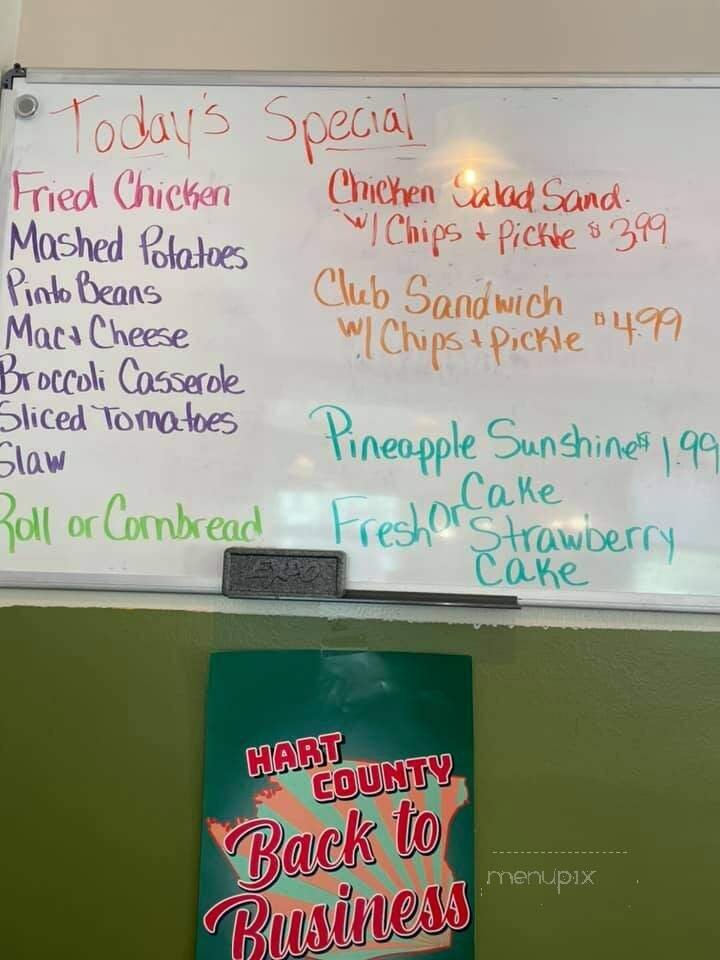 Today's Special
Fried Chicken
Mashed Potatoes
Pinto Beans
Mac + Cheese
Broccoli Casserole
Sliced Tomatoes
Slaw
Roll or Cornbread
Chicken Salad Sand.
w/ Chips + Pickle $ 3.99
Club Sandwich
w/ Chips + Pickle $ 4.99
Pineapple Sunshine $ 1.99
Cake
or
Fresh Strawberry
Cake
EXPO
HART
COUNTY
Back to
Business
menupix